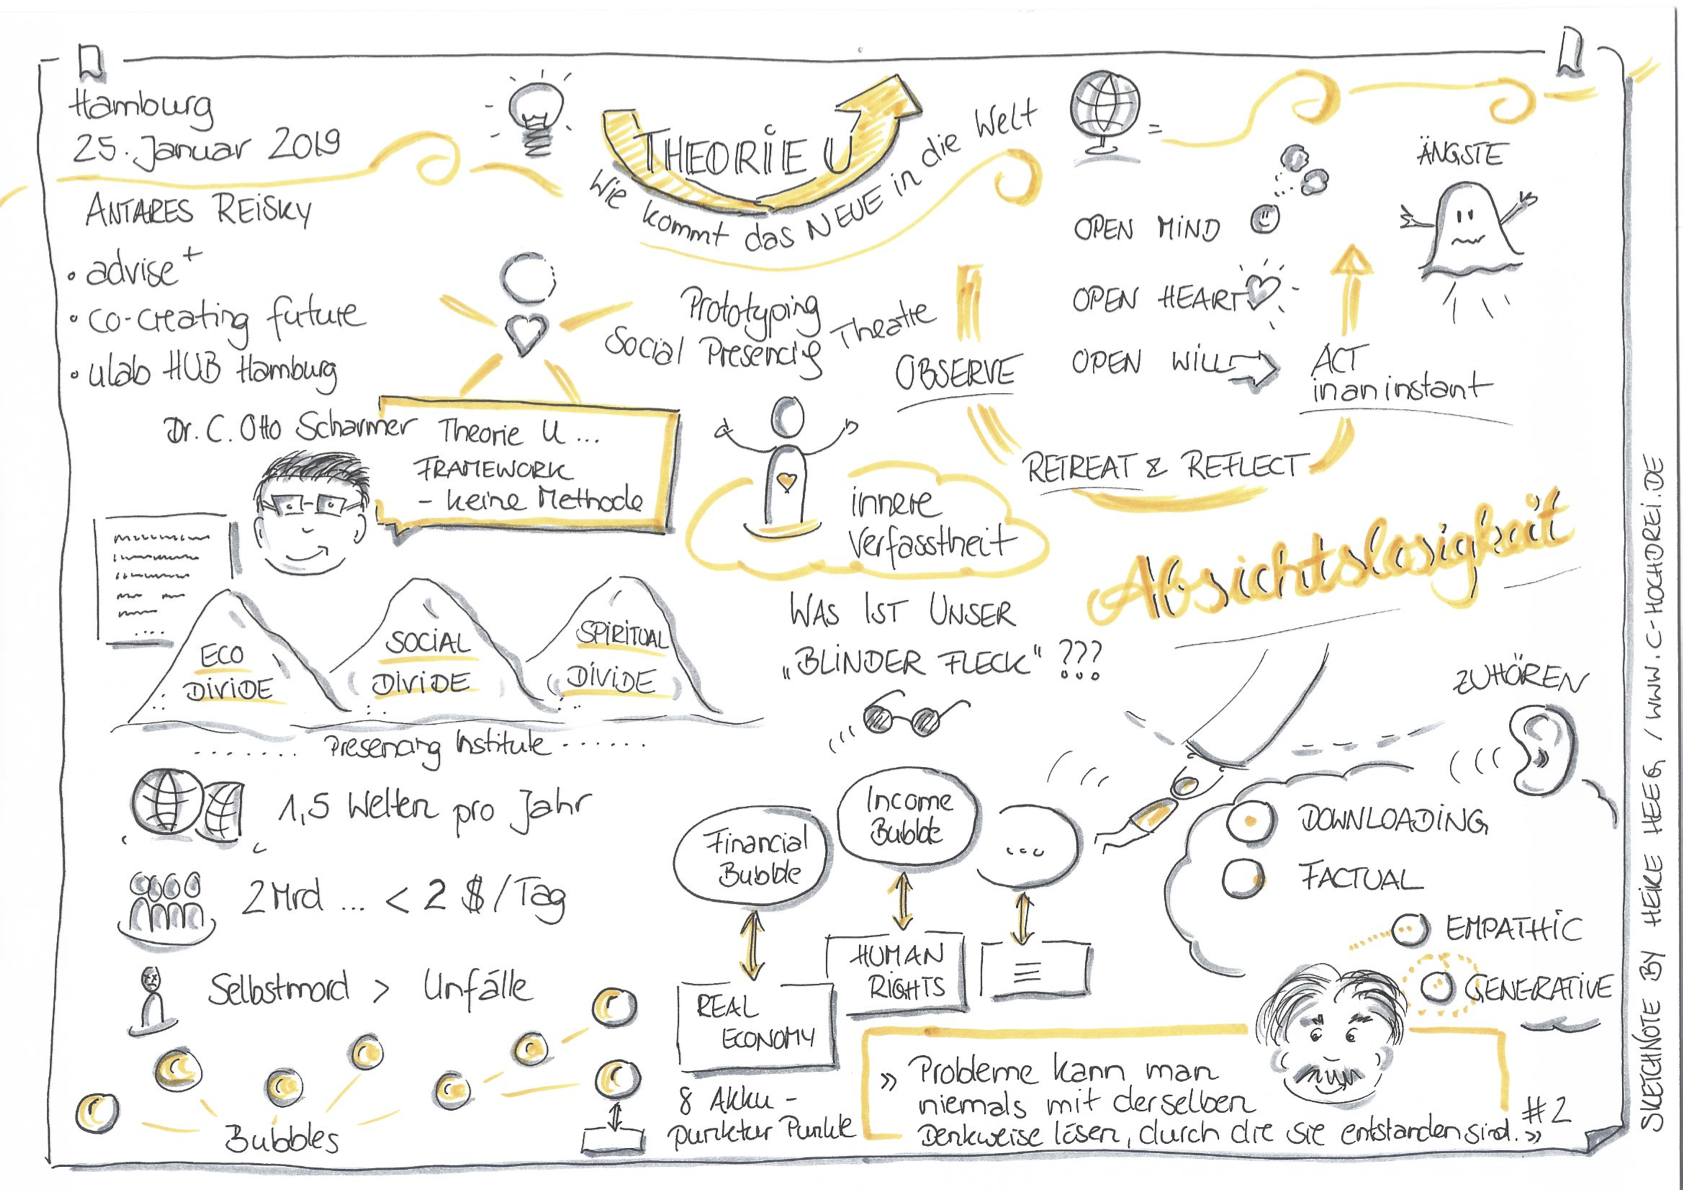 Hamburg
25. Januar 2019
ANTARES REISKY
• advise+
• co-creating future
• ulab HUB Hamburg
THEORIE U
Wie kommt das NEUE in die Welt
Prototyping
Social Presencing Theatre
OBSERVE
RETREAT & REFLECT
ACT
in an instant
OPEN MIND
OPEN HEART
OPEN WILL
ÄNGSTE
Dr. C. Otto Scharmer
Theorie U ...
FRAMEWORK
- keine Methode
innere
Verfasstheit
Absichtslosigkeit
ECO
DIVIDE
SOCIAL
DIVIDE
SPIRITUAL
DIVIDE
....... Presencing Institute ......
WAS IST UNSER
„BLINDER FLECK" ???
ZUHÖREN
DOWNLOADING
FACTUAL
EMPATHIC
GENERATIVE
1,5 Welten pro Jahr
2 Mrd ... < 2 $/Tag
Selbstmord > Unfälle
Bubbles
Financial
Bubble
Income
Bubble
...
REAL
ECONOMY
HUMAN
RIGHTS
8 Akku-
punktur Punkte
» Probleme kann man
niemals mit derselben
Denkweise lösen, durch die sie entstanden sind. »
#2
SKETCHNOTE BY HEIKE HEEG / WWW.C-HOCHDREI.DE